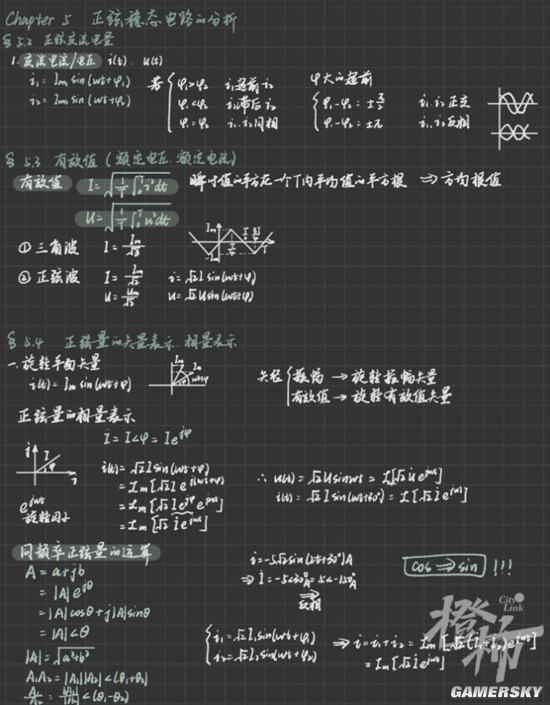 Chapter 5 正弦稳态电路的分析
§5.2 正弦交流电量
1. 交流电流/电压 i(t). u(t)
i₁ = Im₁ sin(wt+φ₁)
i₂ = Im₂ sin(wt+φ₂)
若 { φ₁>φ₂ i₁超前i₂
φ₁<φ₂ i₁滞后i₂
φ₁=φ₂ i₁.i₂同相
φ大的超前
{ φ₁-φ₂=±π/2 i₁.i₂正交
φ₁-φ₂=±π i₁.i₂反相
§5.3 有效值(额定电压.额定电流)
有效值 I=√(1/T ∫₀ᵀ i²dt) 瞬时值的平方在一个T内平均值的平方根 ⇒方均根值
U=√(1/T ∫₀ᵀ u²dt)
① 三角波 I=Im/√3
② 正弦波 I=Im/√2 i=√2I sin(wt+φ)
U=Um/√2 u=√2U sin(wt+φ)
§5.4 正弦量的矢量表示.相量表示
一.旋转平面矢量
i(t)=Im sin(wt+φ)
矢径 { 振幅 → 旋转振幅矢量
有效值 → 旋转有效值矢量
正弦量的相量表示
İ=I∠φ=Ie^jφ
i(t)=√2I sin(wt+φ)
=Im[√2I e^j(wt+φ)]
=Im[√2I e^jφ e^jwt]
=Im[√2 İ e^jwt]
e^jwt
旋转因子
∴ u(t)=√2U sinwt = Im[√2 U̇ e^jwt]
i(t)=√2I sin(wt+30°)=Im[√2 İ e^jwt]
同频率正弦量的运算
A=a+jb
=|A|e^jθ
=|A|cosθ+j|A|sinθ
=|A|∠θ
|A|=√(a²+b²)
A₁A₂=|A₁||A₂|∠(θ₁+θ₂)
A₁/A₂=|A₁|/|A₂|∠(θ₁-θ₂)
i=-5√2 sin(2t+30°)A
⇒ İ=-5∠30°A=5∠-150°A
反相
cos ⇒ sin !!!
{ i₁=√2I₁sin(wt+φ₁)
i₂=√2I₂sin(wt+φ₂)
⇒ i=i₁+i₂=Im[√2(İ₁+İ₂)e^jwt]
=Im[√2 İ e^jwt]
橙柿
City Link
GAMERSKY